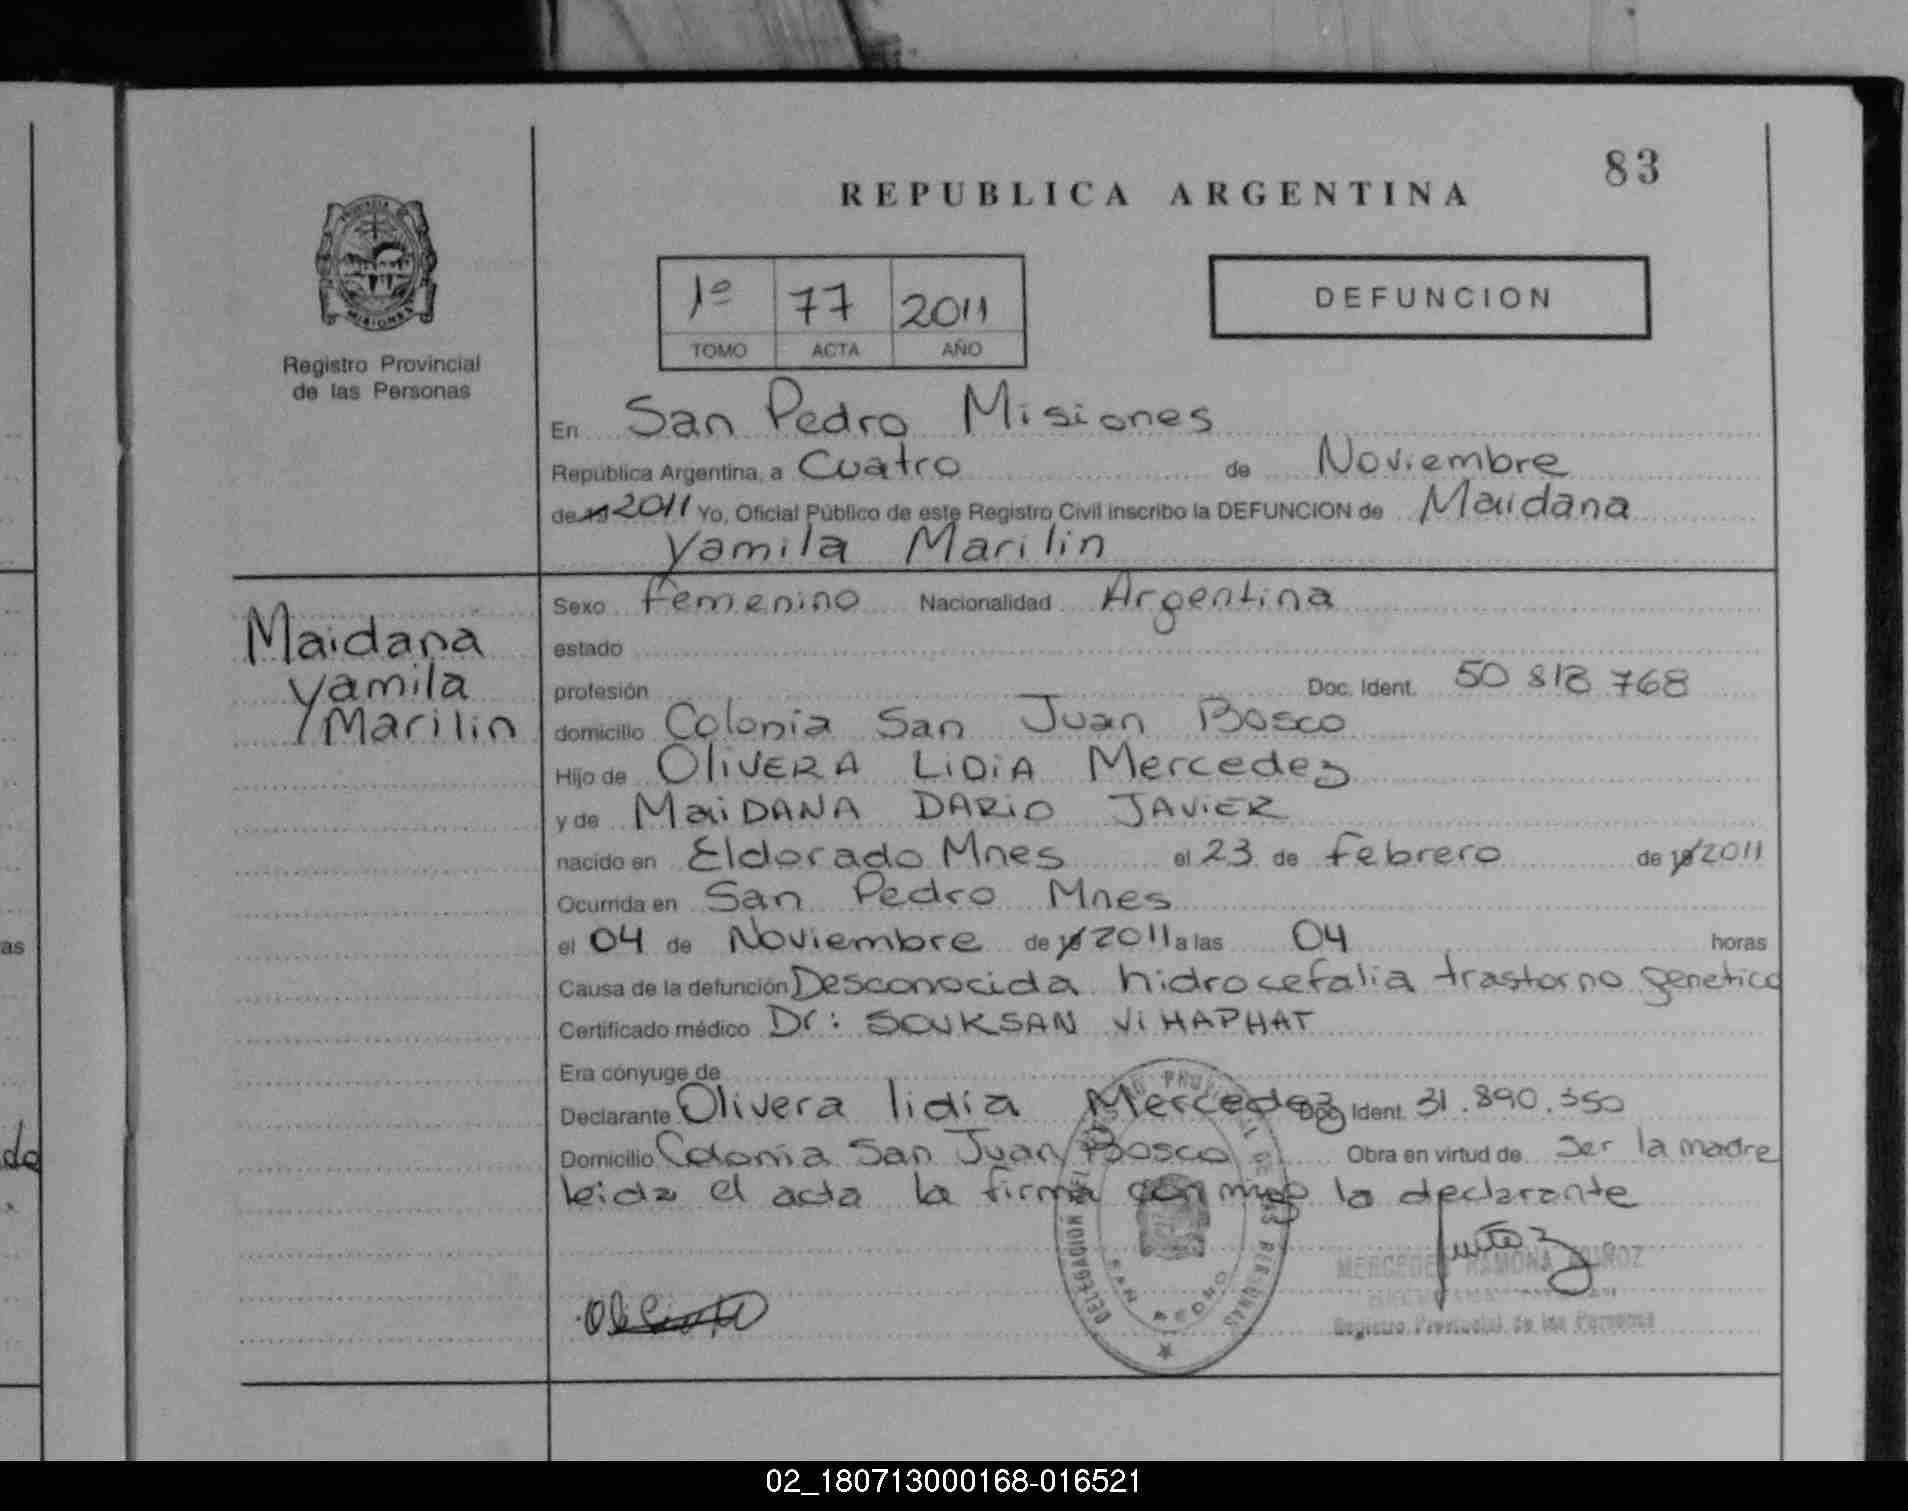 83
REPUBLICA ARGENTINA
MISIONES
Registro Provincial
de las Personas
1º 77 2011
TOMO ACTA AÑO
DEFUNCION
En San Pedro Misiones
República Argentina, a Cuatro de Noviembre
de 19 2011 Yo, Oficial Público de este Registro Civil inscribo la DEFUNCION de Maidana
Yamila Marilin
Maidana
Yamila
Marilin
Sexo femenino Nacionalidad Argentina
estado
profesión Doc. Ident. 50 818 768
domicilio Colonia San Juan Bosco
Hijo de OliVERA LiDiA Mercedes
y de MaiDANA DARiO JAViER
nacido en Eldorado Mnes el 23 de febrero de 19 2011
Ocurrida en San Pedro Mnes
el 04 de Noviembre de 19 2011 a las 04 horas
Causa de la defunción Desconocida hidrocefalia trastorno genetico
Certificado médico Dr: SOUKSAN ViHAPHAT
Era cónyuge de
Declarante Olivera lidia Mercedez Doc. Ident. 31.890.350
Domicilio Colonia San Juan Bosco Obra en virtud de Ser la madre
leida el acta la firma con migo la declarante
DELEGACION DEL REGISTRO PROVINCIAL DE LAS PERSONAS
SAN PEDRO
MERCEDES RAMONA MUÑOZ
Registro Provincial de las Personas
as
do
02_180713000168-016521